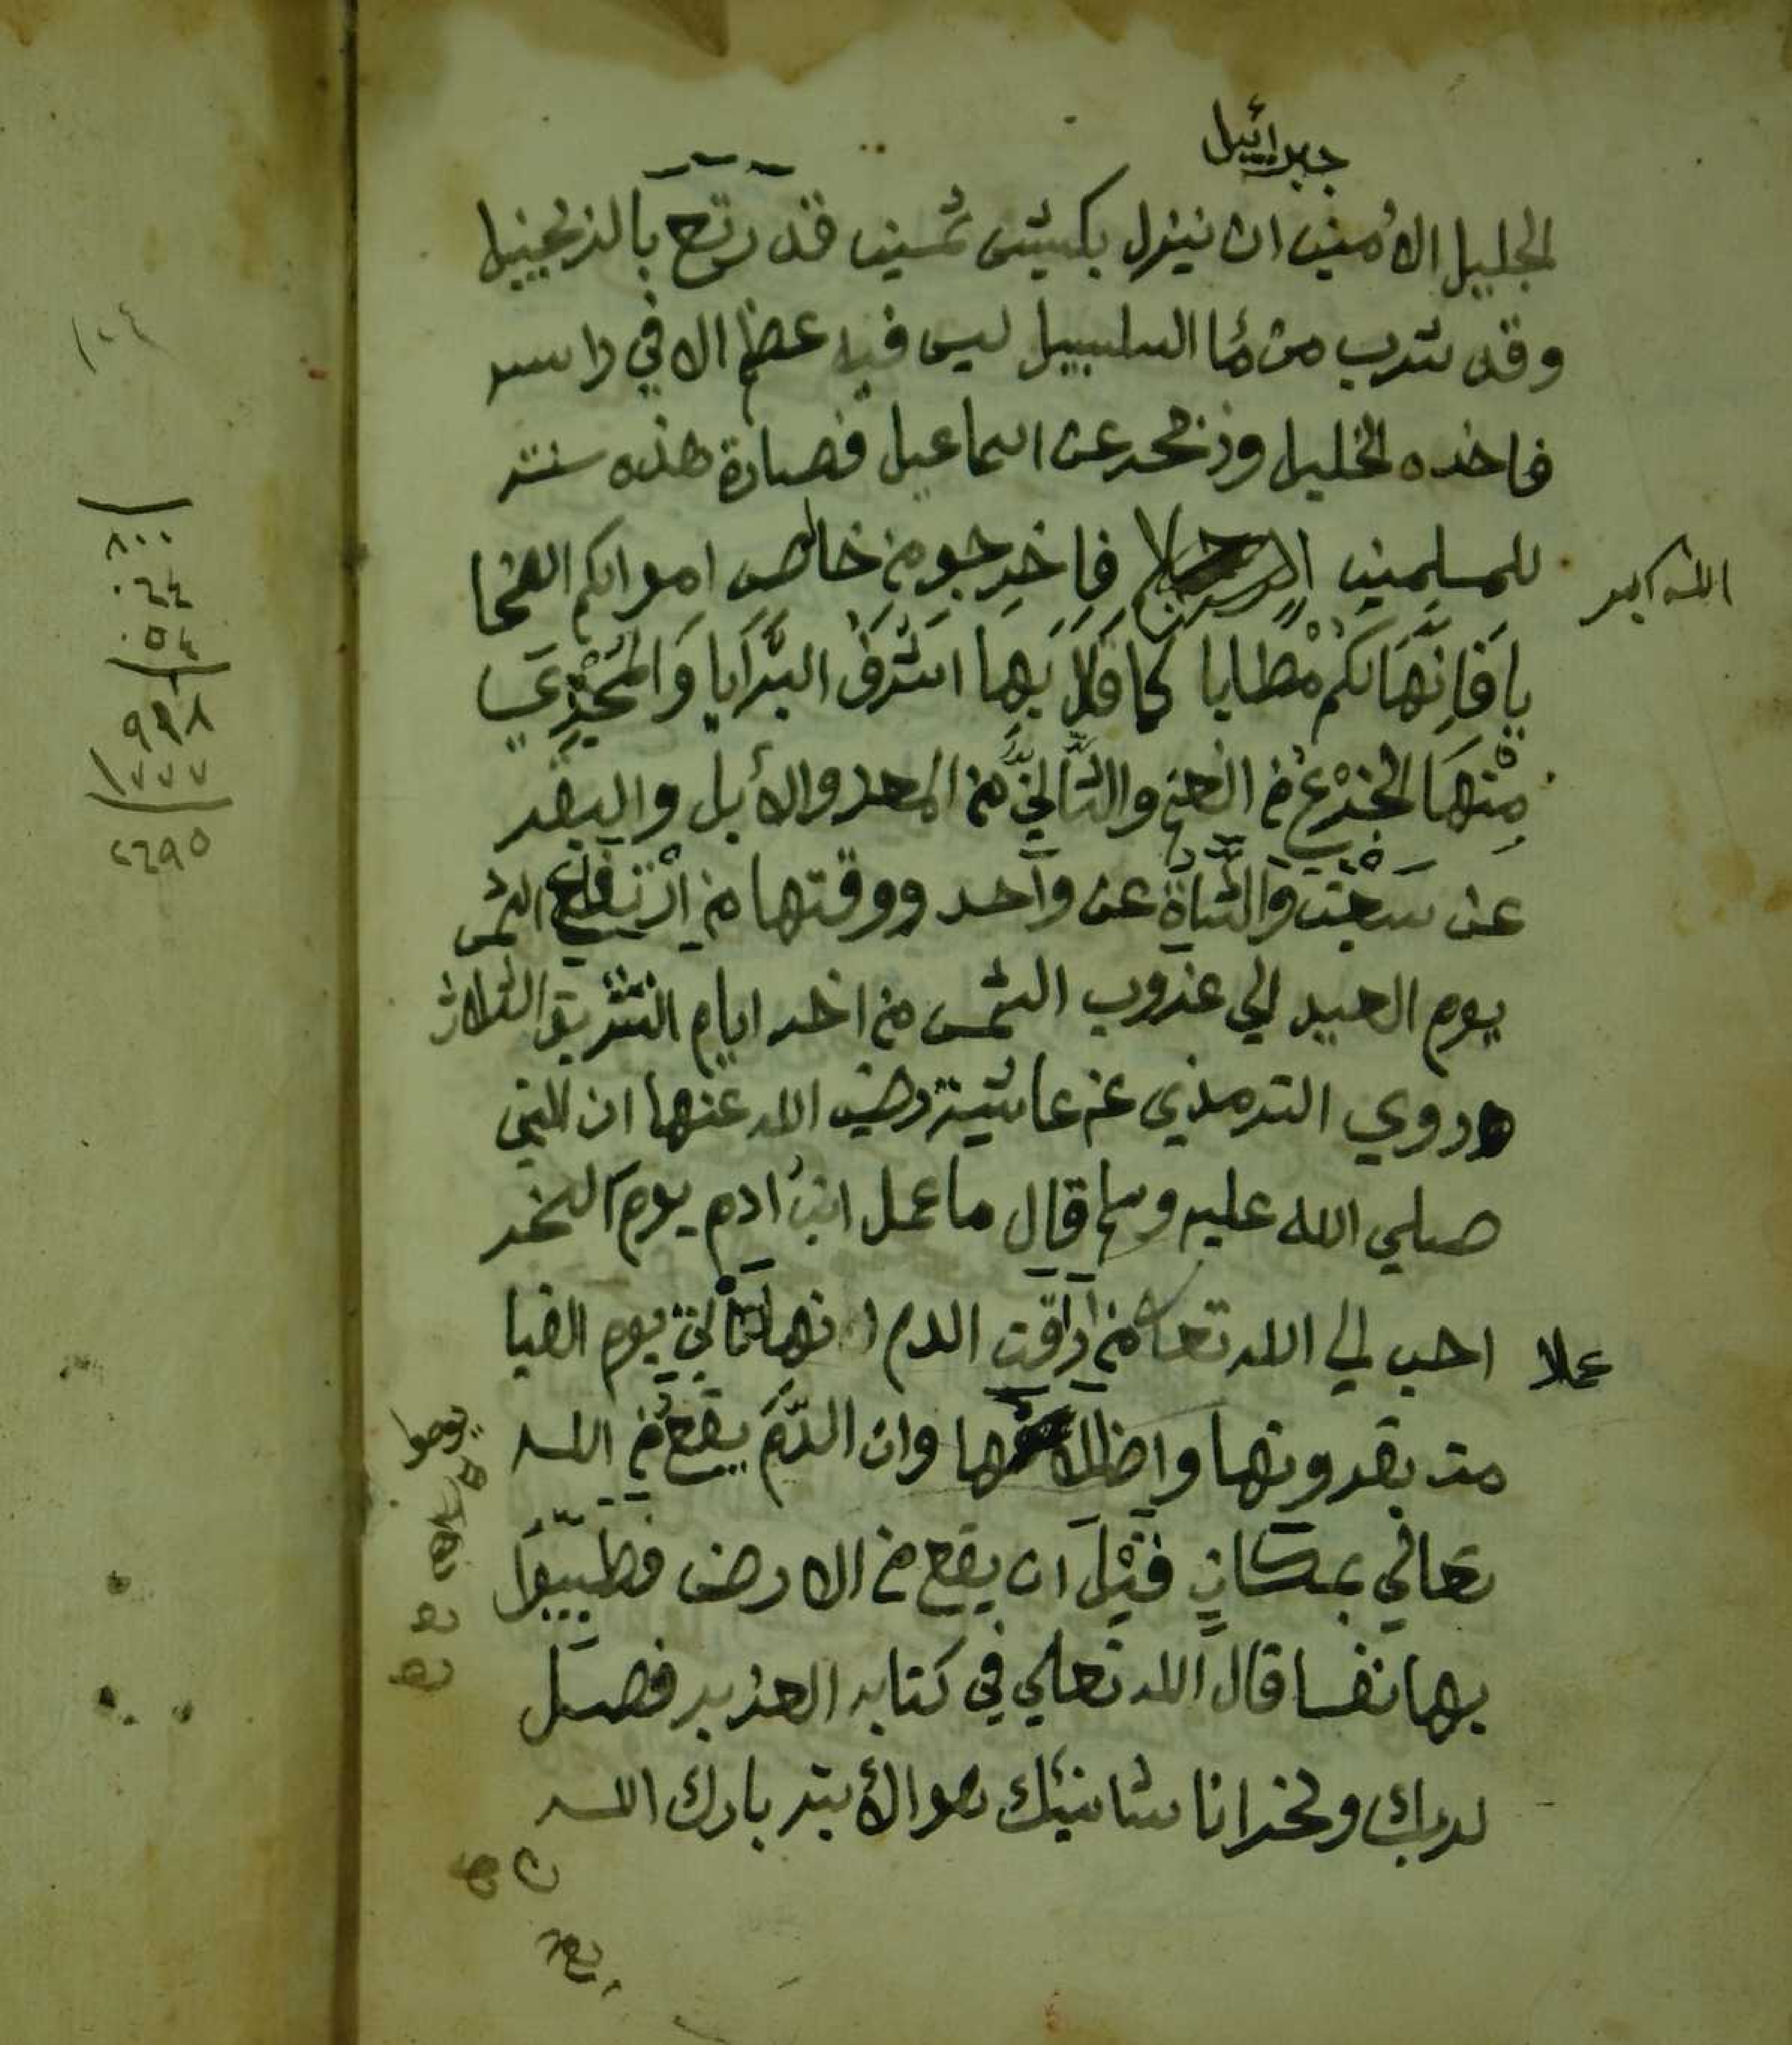 جبرائيل
الجليل الأمين ان ينزل بكبش ثمين قد رتع بالزنجبيل
وقد شرب من مٔا السلسبيل ليس فيه عظم الا في راسه
فاخده الخليل وذبحه عن اسماعيل فصارة هذه سنته
للمسلمين فاخرجو من خالص اموالكم الضحا
الله اكبر
يا فانها لكم مطايا كما قلا بها اشرف البرايا والمجزي
منها الجذع من الغنم والثاني من المعز والأبل والبقر
عن سبعة والشاة عن واحد ووقتها من ارتفاع الشمس
يوم العيد الي غروب الشمس من اخر ايام التشريق الثلاث
وروي الترمذي عن عائشة رضي الله عنها ان للنبي
صلي الله عليه وسلم قال ما عمل ابن ادم يوم النحر
عملا
احب الي الله تعا من اراقت الدم انها لتأتي يوم القيا
مة بقرونها واظلافها وان الدم يقع من الله
تعالي بمكان قبل ان يقع من الارض فطيبوا
بها نفسا قال الله تعلي في كتابه العزيز فصل
لربك ونحر انا شانئك هو الأبتر بارك الله
٨٠٠
٩٩٨
١٧٧٧
٢٦٩٥